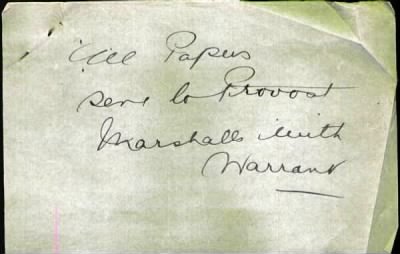 All Papers
sent to Provost
Marshalls with
Warrant